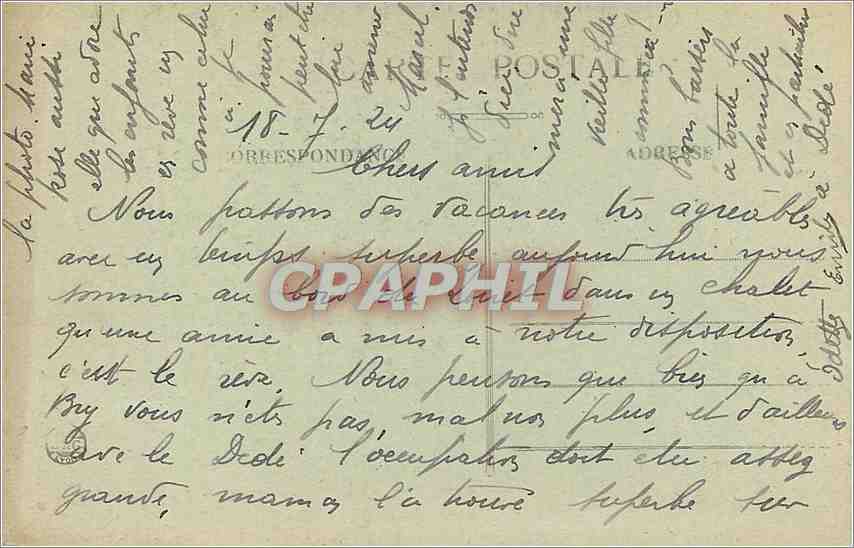 CARTE POSTALE
CORRESPONDANCE
ADRESSE
18-7-24
Chers amis
Nous passons des vacances très agréables
avec un temps superbe aujourd'hui nous
sommes au bord du Loiret dans un chalet
qu'une amie a mis à notre disposition,
c'est le rêve. Nous pensons que bien qu'à
Bry vous n'êtes pas mal non plus, et d'ailleurs
avec le Dédé l'occupation doit être assez
grande, maman l'a trouvé superbe sur
la photo. Marie
Rose aussi
elle qui adore
les enfants
en rêve un
comme celui
à
pourrai
peut être
lui
amener
Marcel.
Je l'entends
dire d'une
mer à une
vieille fille
comme
Bons baisers
à toute la
famille
et en particulier
à Dédé,
Odette Emile
CPAPHIL